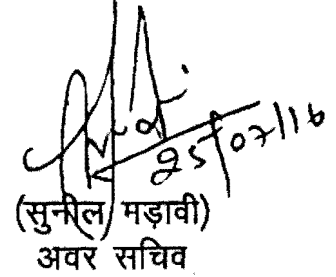 25/07/16
(सुनील मड़ावी)
अवर सचिव